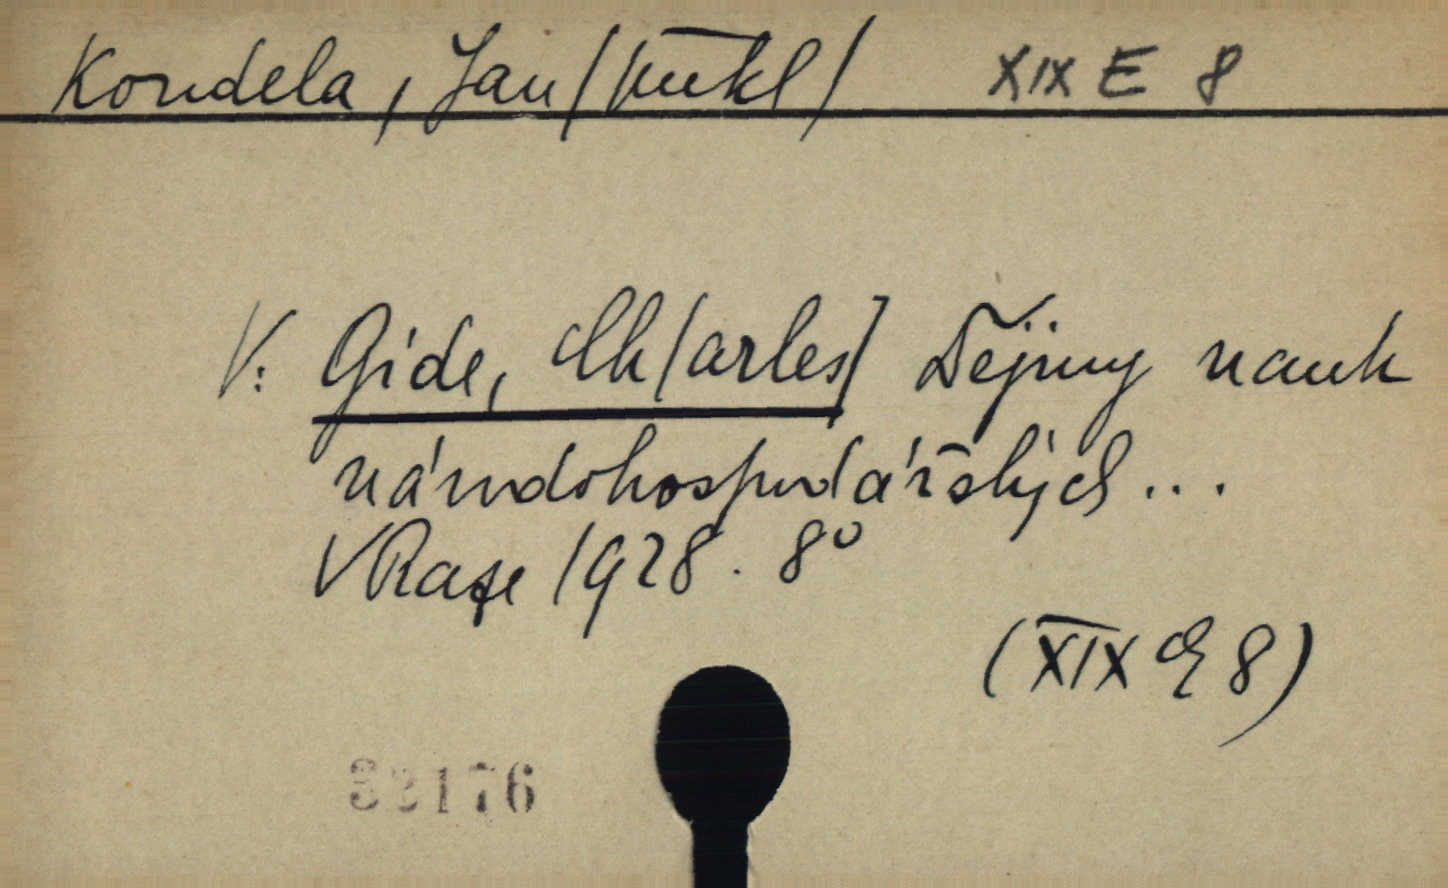 Kondela, Jan /překl/ XIX E 8
V: Gide, Ch[arles] Dějiny nauk
národohospodářských...
V Praze 1928. 8°
(XIX E 8)
32176